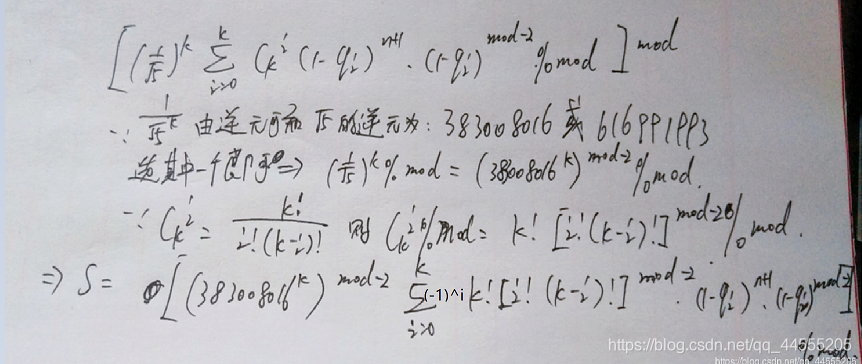 [(1/√5)^k ∑_{i=0}^{k} C_k^i (1-q_i)^{n+1} · (1-q_i)^{mod-2} % mod ] mod
∵ 1/√5^k 由逆元可知 √5 的逆元为: 383008016 或 616991993
选其中一个即可 ⇒ (1/√5)^k % mod = (383008016^k)^{mod-2} % mod.
∵ C_k^i = k!/(i!(k-i)!) 则 C_k^i % mod = k! [i!(k-i)!]^{mod-2} % mod.
⇒ S = [(383008016^k)^{mod-2} ∑_{i=0}^{k} (-1)^i k! [i! (k-i)!]^{mod-2} · (1-q_i)^{n+1} · (1-q_i)^{mod-2}]
% mod
https://blog.csdn.net/qq_44555205